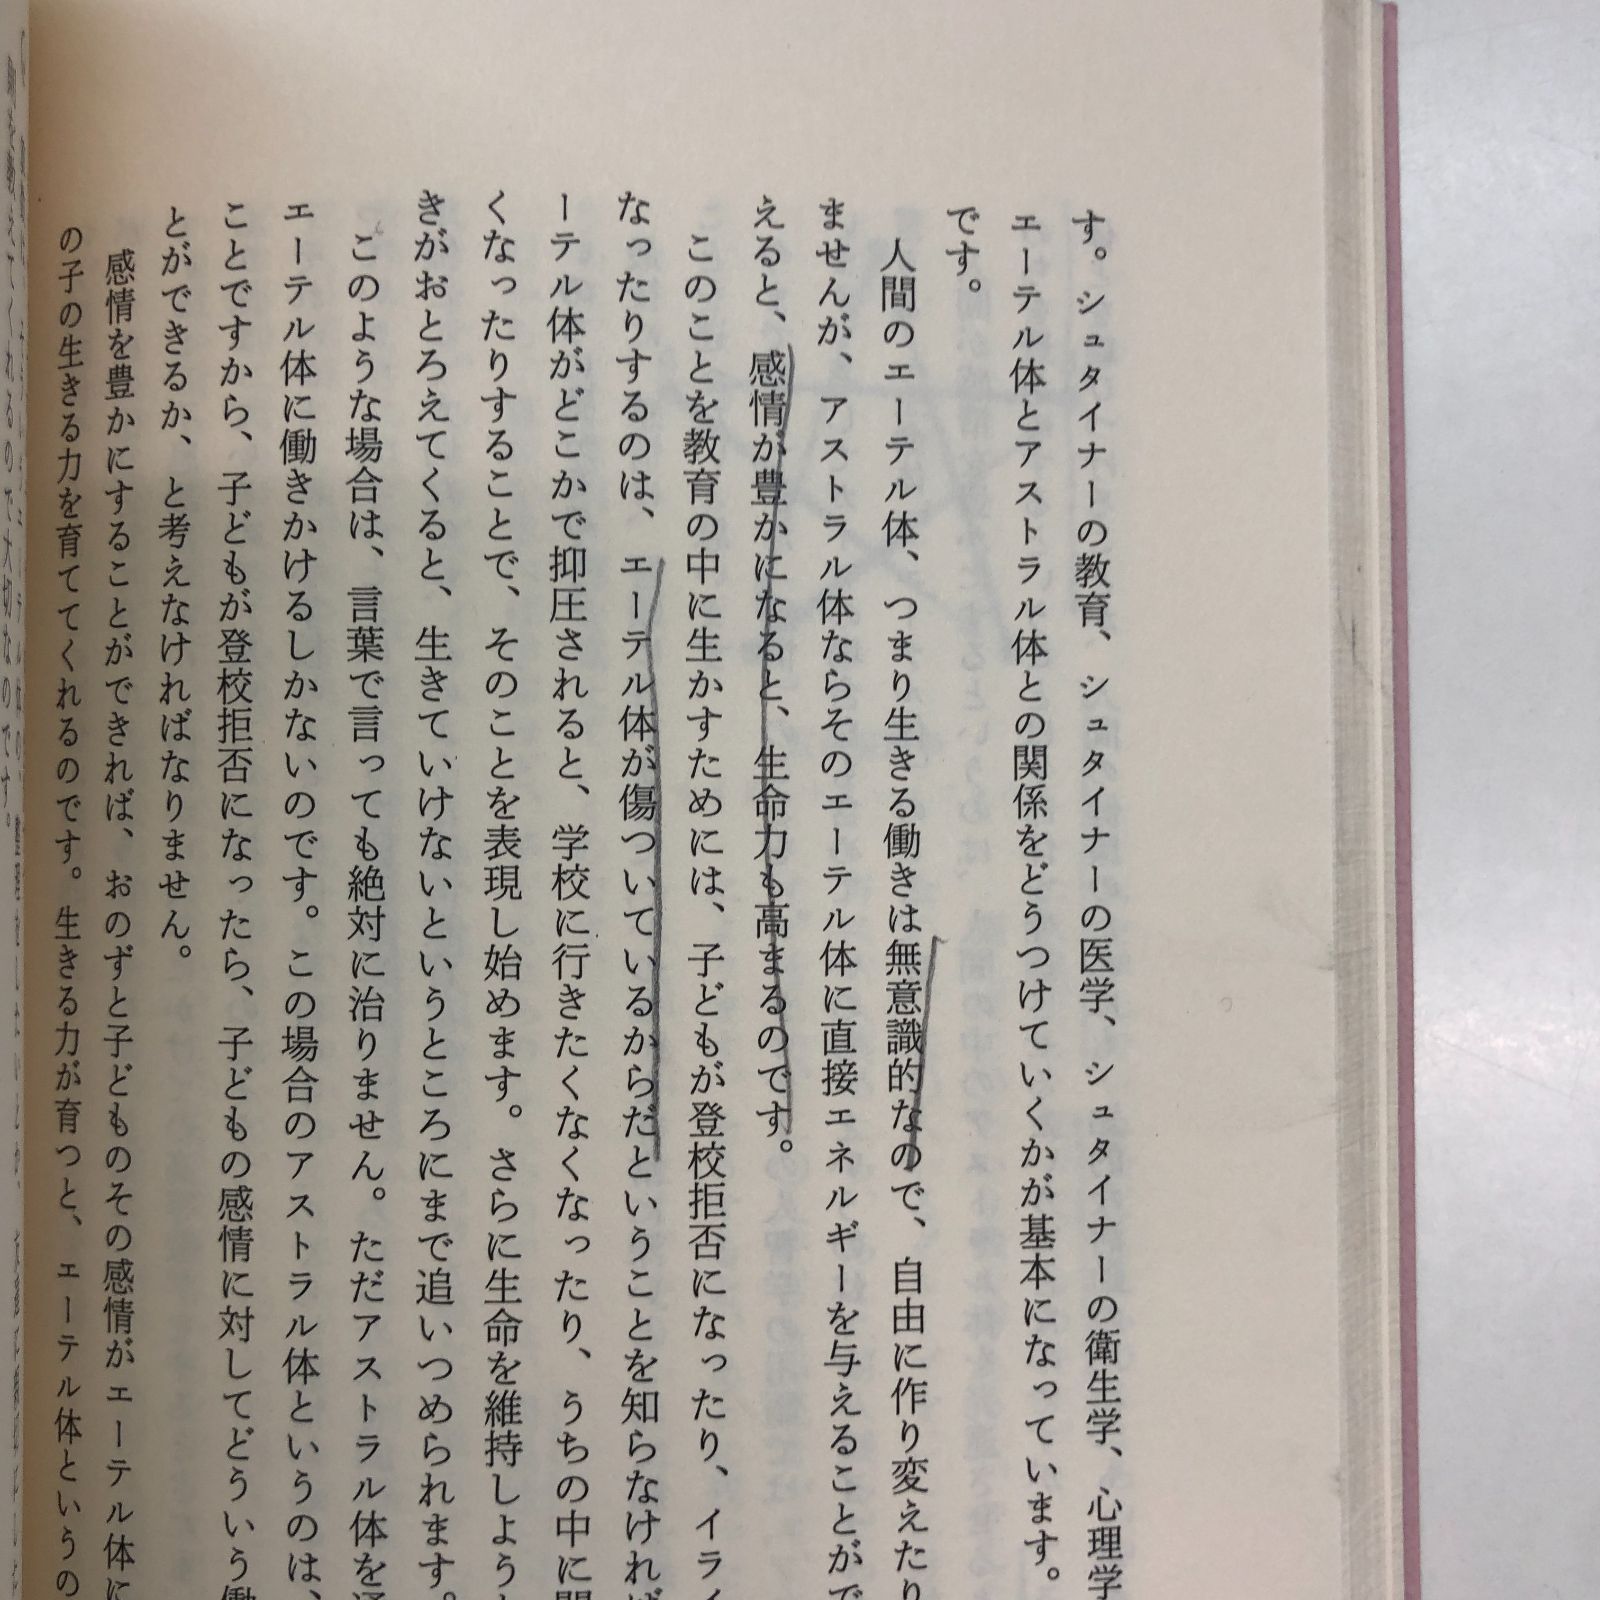 す。シュタイナーの教育、シュタイナーの医学、シュタイナーの衛生学、心理学
エーテル体とアストラル体との関係をどうつけていくかが基本になっています。
です。
人間のエーテル体、つまり生きる働きは無意識的なので、自由に作り変えたり
ませんが、アストラル体ならそのエーテル体に直接エネルギーを与えることがで
えると、感情が豊かになると、生命力も高まるのです。
このことを教育の中に生かすためには、子どもが登校拒否になったり、イライ
なったりするのは、エーテル体が傷ついているからだということを知らなければ
ーテル体がどこかで抑圧されると、学校に行きたくなくなったり、うちの中に
くなったりすることで、そのことを表現し始めます。さらに生命を維持しようと
きがおとろえてくると、生きていけないというところにまで追いつめられます。
このような場合は、言葉で言っても絶対に治りません。ただアストラル体を
エーテル体に働きかけるしかないのです。この場合のアストラル体というのは、
ことですから、子どもが登校拒否になったら、子どもの感情に対してどういう働
とができるか、と考えなければなりません。
感情を豊かにすることができれば、おのずと子どものその感情がエーテル体に
の子の生きる力を育ててくれるのです。生きる力が育つと、エーテル体というの
を教えてくれるので大切なのです。